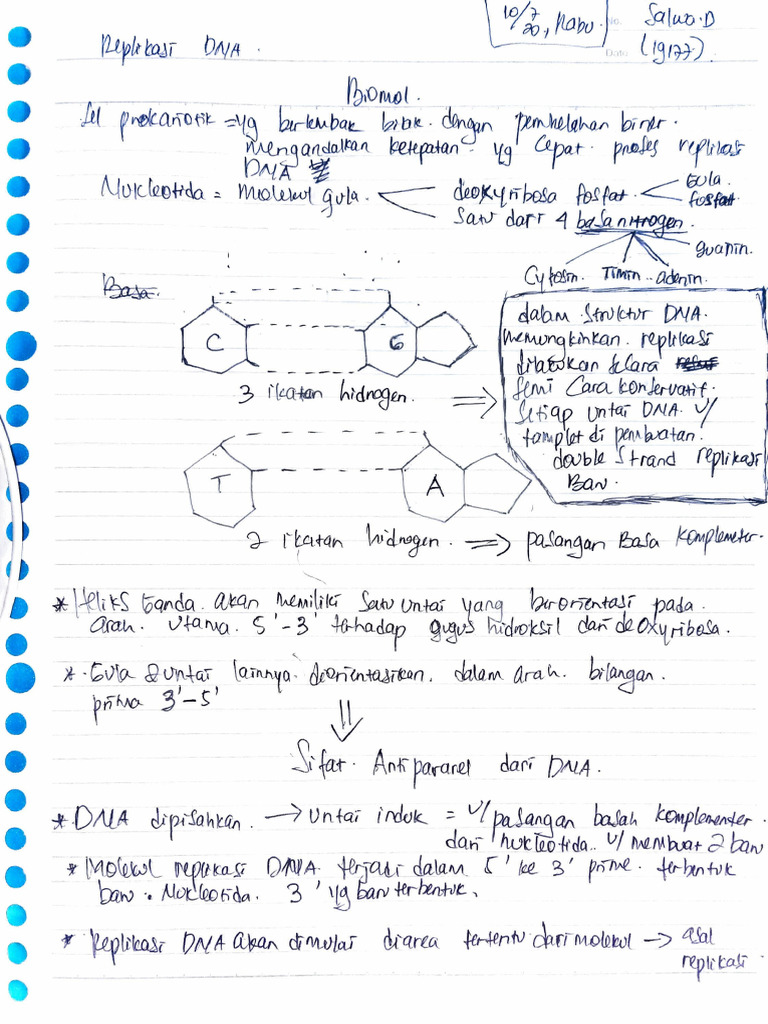 10/7
20, Rabu.
No.
Salwa.D
Date
(19177).
Replikasi DNA.
Biomol.
Sel prokariotik = yg berkembak biak. dengan pembelahan biner.
mengandalkan ketepatan yg Cepat. proses replikasi
DNA
Nukleotida = molekul gula.
deoxyribosa fosfat.
Gula.
fosfat
Satu dari 4 basa nitrogen.
guanin.
Cytosin. Timin.. adenin.
Basa.
C
G
3 ikatan hidrogen.
dalam Struktur DNA.
memungkinkan. replikasi
dilakukan secara
Semi Cara konservatif.
Setiap untai DNA. u/
templet di pembuatan.
double Strand replikasi
Baru.
T
A
2 ikatan hidrogen. => pasangan Basa Komplemeter.
* Heliks Ganda. akan memiliki Satu untai yang berorientasi pada.
arah. utama. 5'-3' terhadap gugus hidroksil dari deoxyribosa.
* Gula & untai lainnya. diorientasikan. dalam arah. bilangan.
prima 3'-5'
Sifat. Antipararel dari DNA.
* DNA dipisahkan. → untai induk = u/ pasangan basah komplementer.
dari nukleotida.. u/ membuat 2 baru
* Molekul replikasi DNA. terjadi dalam 5' ke 3' prime. terbentuk
baru. Nukleotida. 3' yg baru terbentuk.
* Replikasi DNA akan dimulai diarea tertentu dari molekul → asal
replikasi.